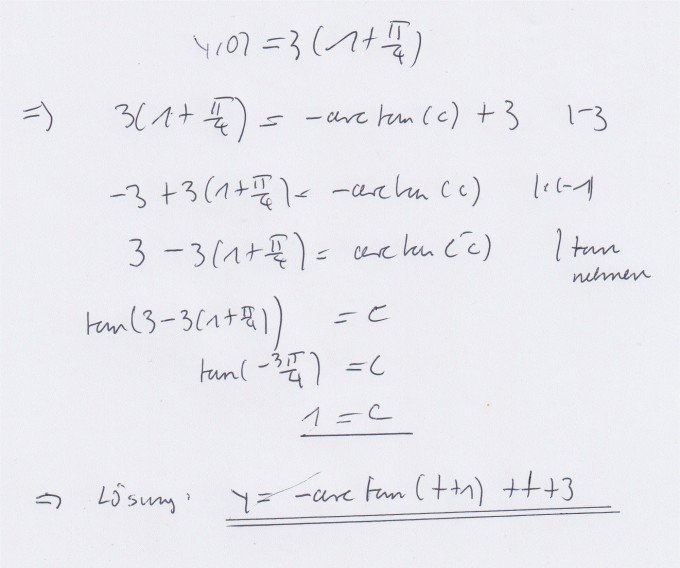 y(0) = 3(1 + π/4)
⇒ 3(1 + π/4) = -arctan(c) + 3 |-3
-3 + 3(1 + π/4) = -arctan(c) |:(-1)
3 - 3(1 + π/4) = arctan(c) | tan nehmen
tan(3 - 3(1 + π/4)) = c
tan(-3π/4) = c
1 = c
⇒ Lösung: y = -arctan(t+1) + t + 3